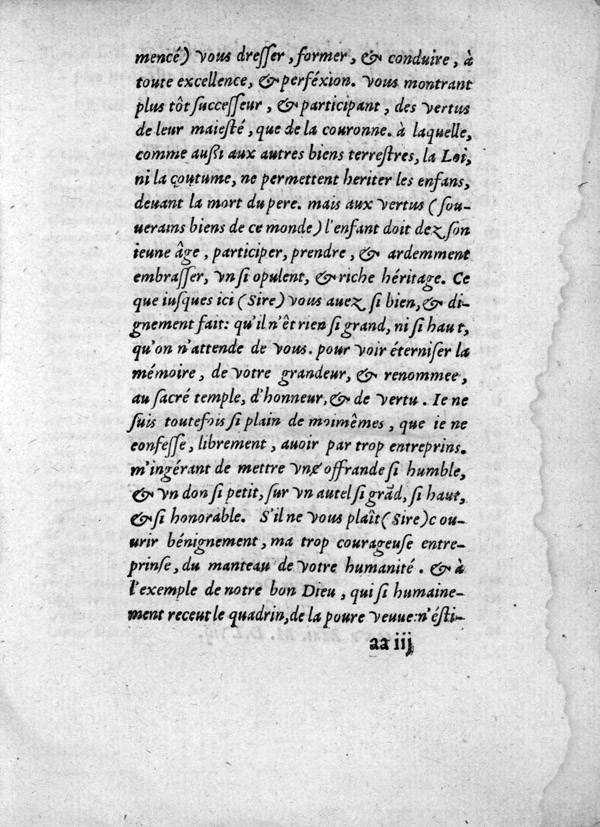 mencé) vous dreſſer, former, & conduire, à
toute excellence, & perféxion. vous montrant
plus tôt ſucceſſeur, & participant, des vertus
de leur maieſté, que de la couronne. à laquelle,
comme außi aux autres biens terreſtres, la Loi,
ni la coutume, ne permettent heriter les enfans,
deuant la mort du pere. mais aux vertus (ſou-
uerains biens de ce monde) l'enfant doit dez ſon
ieune âge, participer, prendre, & ardemment
embraſſer, vn ſi opulent, & riche héritage. Ce
que iuſques ici (Sire) vous auez ſi bien, & di-
gnement fait: qu'il n'êt rien ſi grand, ni ſi haut,
qu'on n'attende de vous. pour voir éterniſer la
mémoire, de votre grandeur, & renommee,
au ſacré temple, d'honneur, & de vertu. Ie ne
ſuis toutefois ſi plain de moimêmes, que ie ne
confeſſe, librement, auoir par trop entreprins.
m'ingérant de mettre vne offrande ſi humble,
& vn don ſi petit, ſur vn autel ſi grãd, ſi haut,
& ſi honorable. S'il ne vous plaît (Sire) cou-
urir bénignement, ma trop courageuſe entre-
prinſe, du manteau de votre humanité. & à
l'exemple de notre bon Dieu, qui ſi humaine-
ment receut le quadrin, de la poure veuue: n'éſti-
aa iij